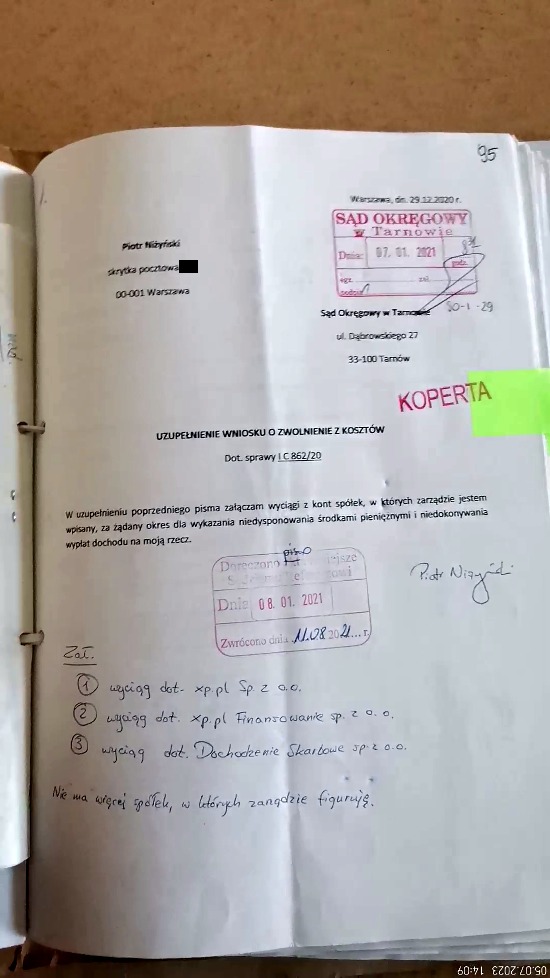 95
1.
Warszawa, dn. 29.12.2020 r.
SĄD OKRĘGOWY
w Tarnowie
Dnia: 07. 01. 2021
godz.
egz. zał.
podpis
Piotr Niżyński
skrytka pocztowa
00-001 Warszawa
Sąd Okręgowy w Tarnowie
ul. Dąbrowskiego 27
33-100 Tarnów
KOPERTA
UZUPEŁNIENIE WNIOSKU O ZWOLNIENIE Z KOSZTÓW
Dot. sprawy I C 862/20
W uzupełnieniu poprzedniego pisma załączam wyciągi z kont spółek, w których zarządzie jestem
wpisany, za żądany okres dla wykazania niedysponowania środkami pieniężnymi i niedokonywania
wypłat dochodu na moją rzecz.
pismo
Doręczono
Dnia 08. 01. 2021
Zwrócono dnia 11.08 2021... r.
Piotr Niżyński
Zał.
1 wyciąg dot. xp.pl Sp. z o.o.
2 wyciąg dot. xp.pl Finansowanie sp. z o.o.
3 wyciąg dot. Dochodzenie Skarbowe sp. z o.o.
Nie ma więcej spółek, w których zarządzie figuruję.
05.07.2023 14:09